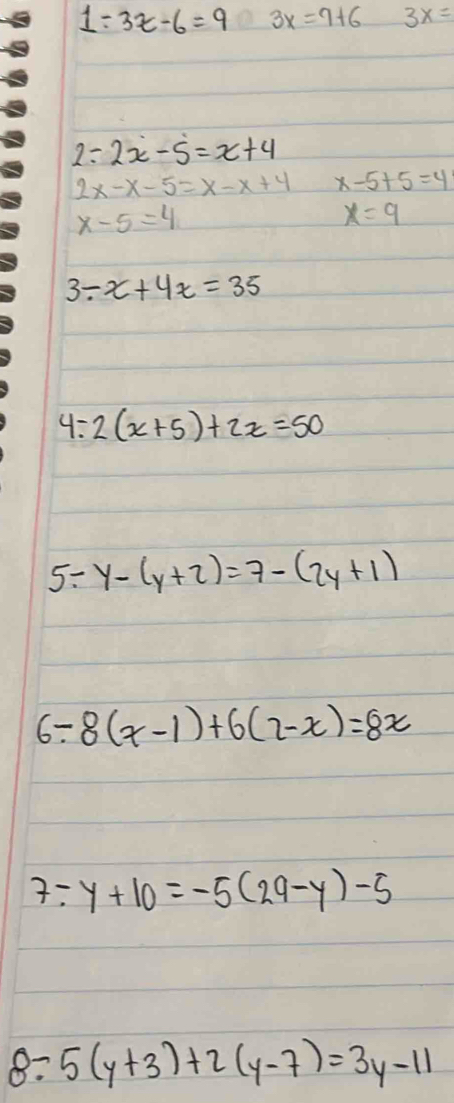 1÷ 3x-6=9 3x=9+6 3x=
2÷ 2x-5=x+4
2x-x-5=x-x+4 x-5+5=4
x-5=4 x=9
3÷ x+4x=35
4÷ 2(x+5)+2x=50
5÷ y-(y+2)=7-(2y+1)
6÷ 8(x-1)+6(2-x)=8x
7÷ y+10=-5(29-y)-5
8÷ 5(y+3)+2(y-7)=3y-11